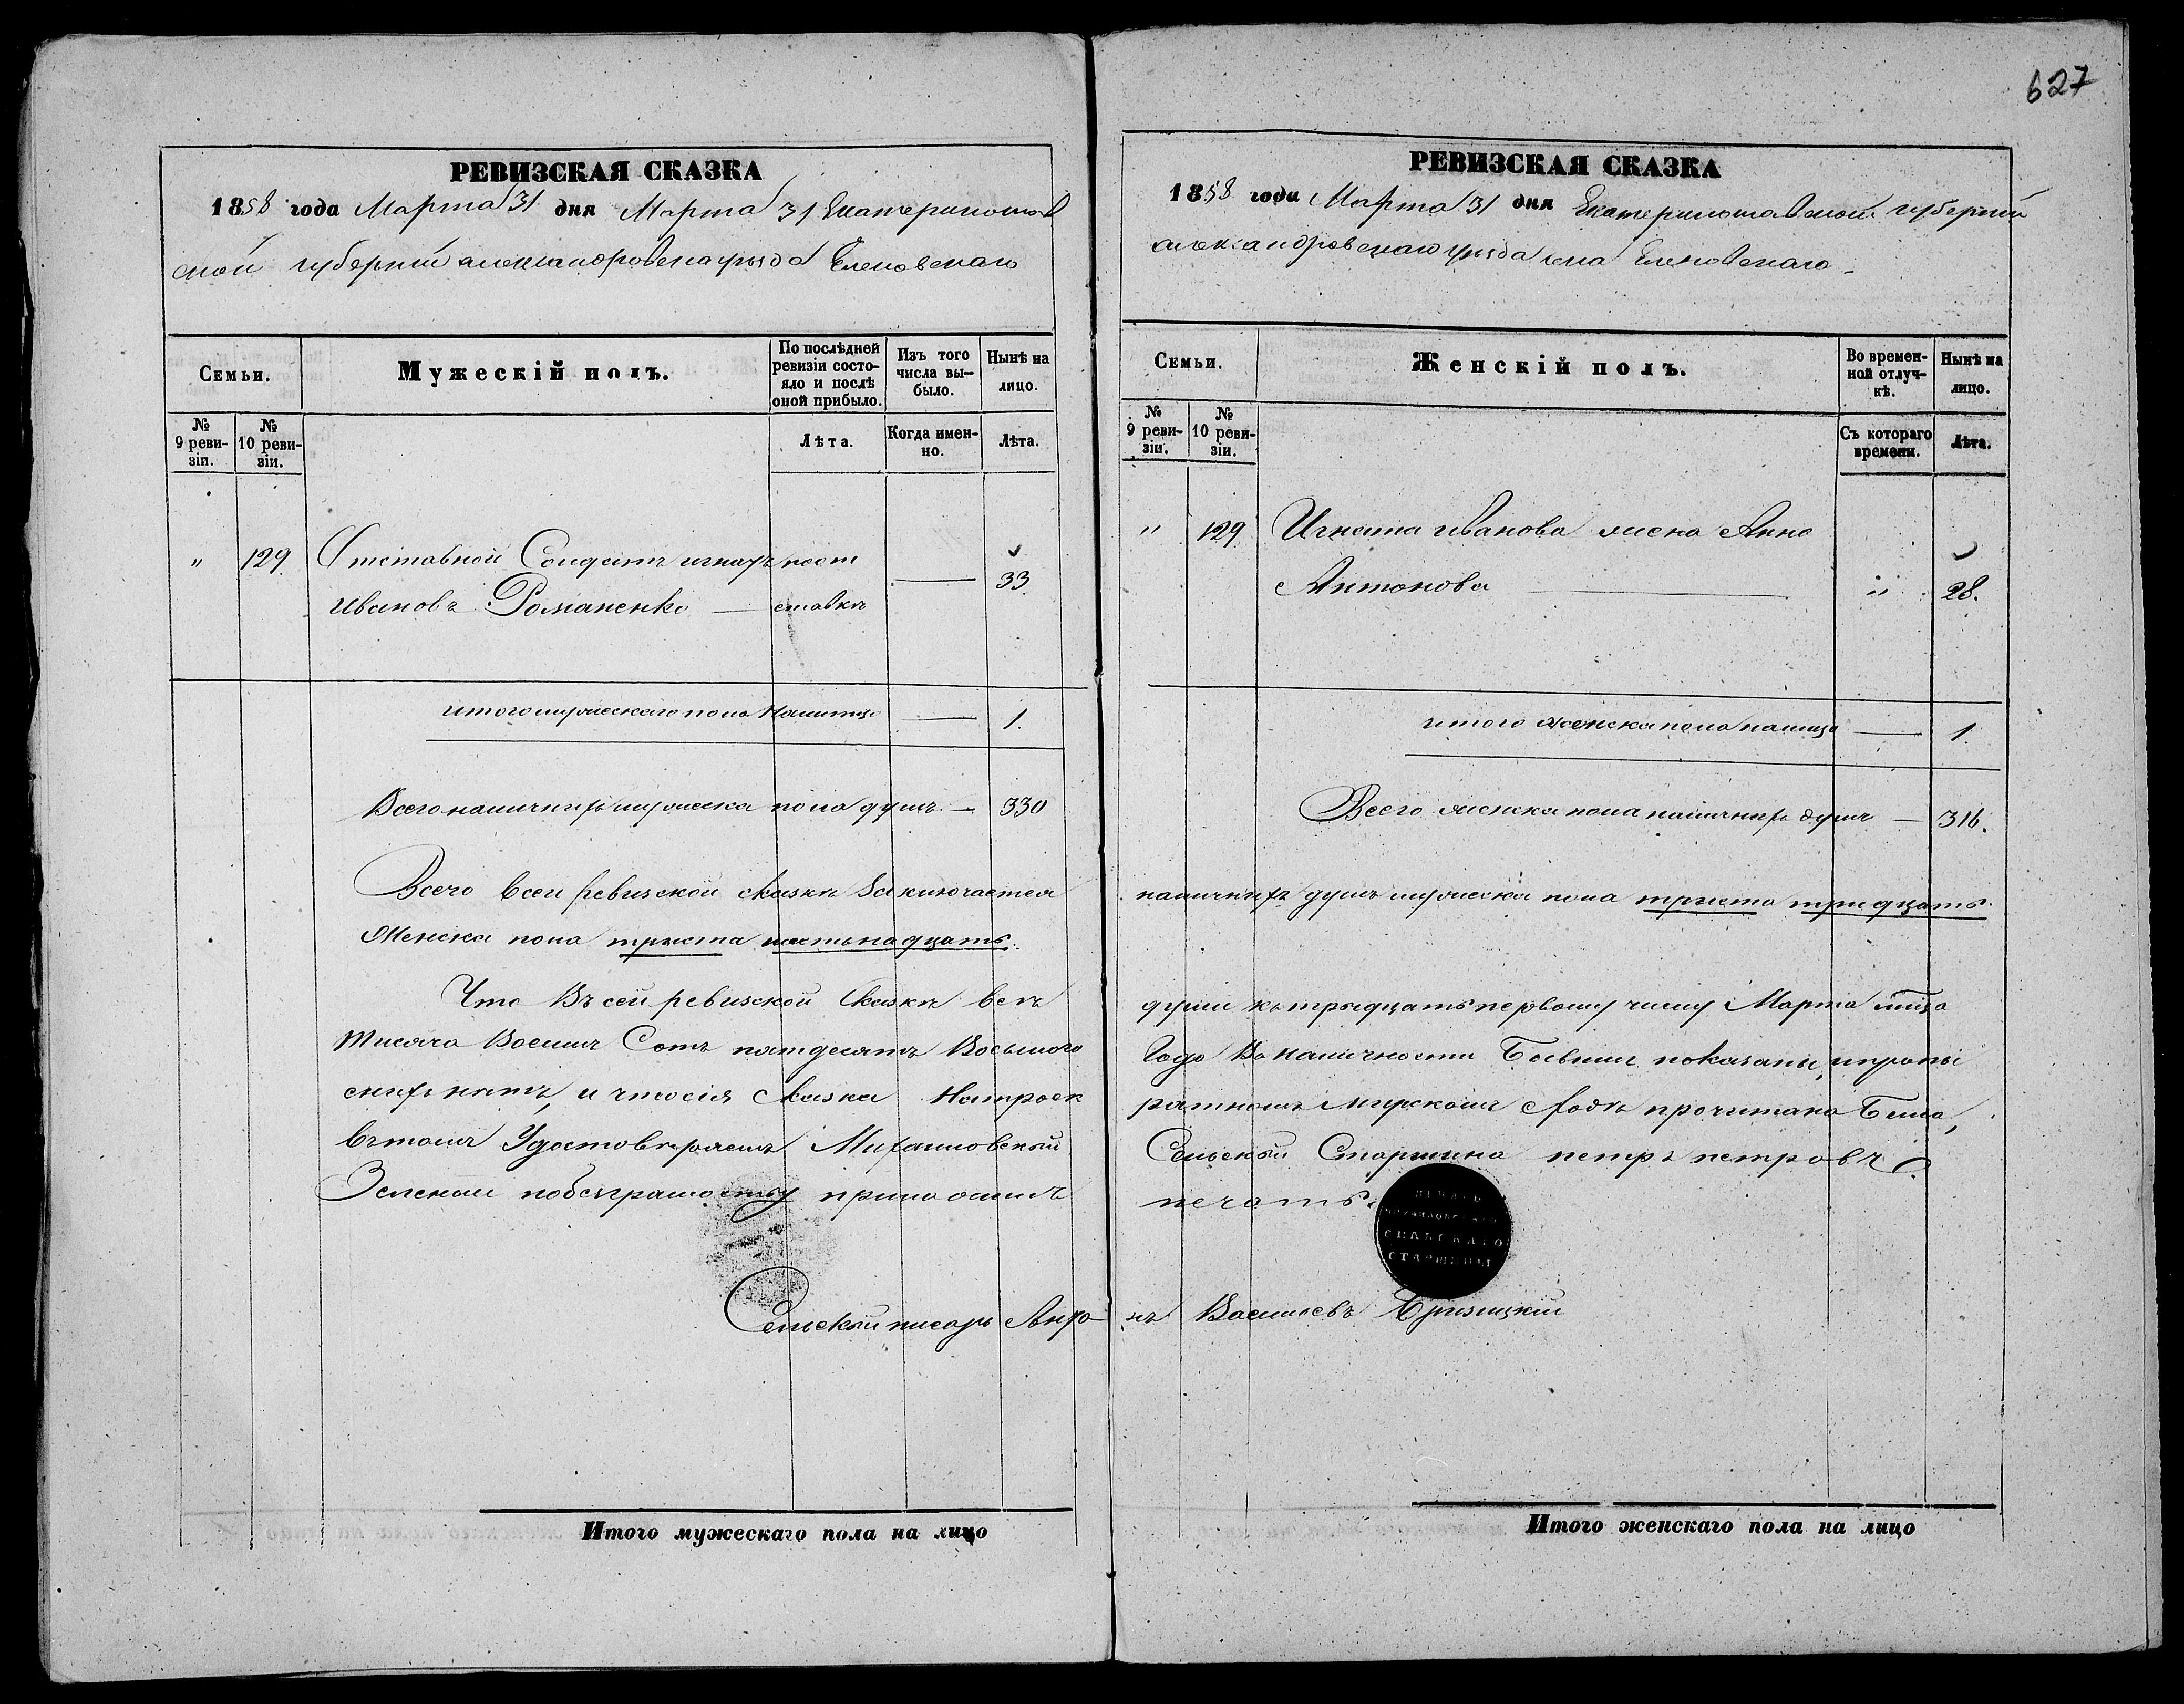 627
РЕВИЗСКАЯ СКАЗКА
1858 года Марта 31 дня Марта 31 Екатеринослав
ской губерній александровска уезда Еленовскаго
Семьи.
Мужескій полъ.
По послѣдней ревизіи состояло и послѣ оной прибыло.
Изъ того числа выбыло.
Нынѣ на лицо.
№ 9 ревизіи.
№ 10 ревизіи.
Лѣта.
Когда именно.
Лѣта.
" 129 Отставной Солдатъ игнатъ поот
ивановъ Романенко — ставкѣ — 33
итого мужескаго пола Налицо — 1.
Всего наличныхъ мужеска пола душъ — 330
Всего всей ревизской сказкѣ Заключается
Женска пола триста шестьнадцать.
Что Въ сей ревизской Сказкѣ всѣ
Тисяча Восемъ Сотъ пятдесятъ Восьмого
снихъ нѣтъ, и что сія Сказка Натроек
Втомъ Удостовѣряемъ Михаиловскый
Зеленый побезграмотству приложилъ
Сельскый писарь
Итого мужескаго пола на лицо
РЕВИЗСКАЯ СКАЗКА
1858 года Марта 31 дня Екатеринославской губерніи
александровскаго уезда села Еленовскаго
Семьи.
Женскій полъ.
Во временной отлучкѣ.
Нынѣ на лицо.
№ 9 ревизіи.
№ 10 ревизіи.
Съ котораго времени.
Лѣта.
" 129 Игната иванова жена Анна
Антонова — " 28.
итого женска пола налицо — 1
Всего женска пола наличныхъ душъ — 316.
наличныхъ душъ мужеска пола триста тридцать
души къ тридцать первому числу Марта
Года Въ наличности Бывшие показаны, ипропы
ратномъ мирскомъ сходѣ прочитана Была,
Сельскый Старшина петръ петровъ
печать.
ПЕЧАТЬ
МИХАЙЛОВСКАГО
СЕЛЬСКАГО
СТАРШИНЫ
Васильевъ
Итого женскаго пола на лицо